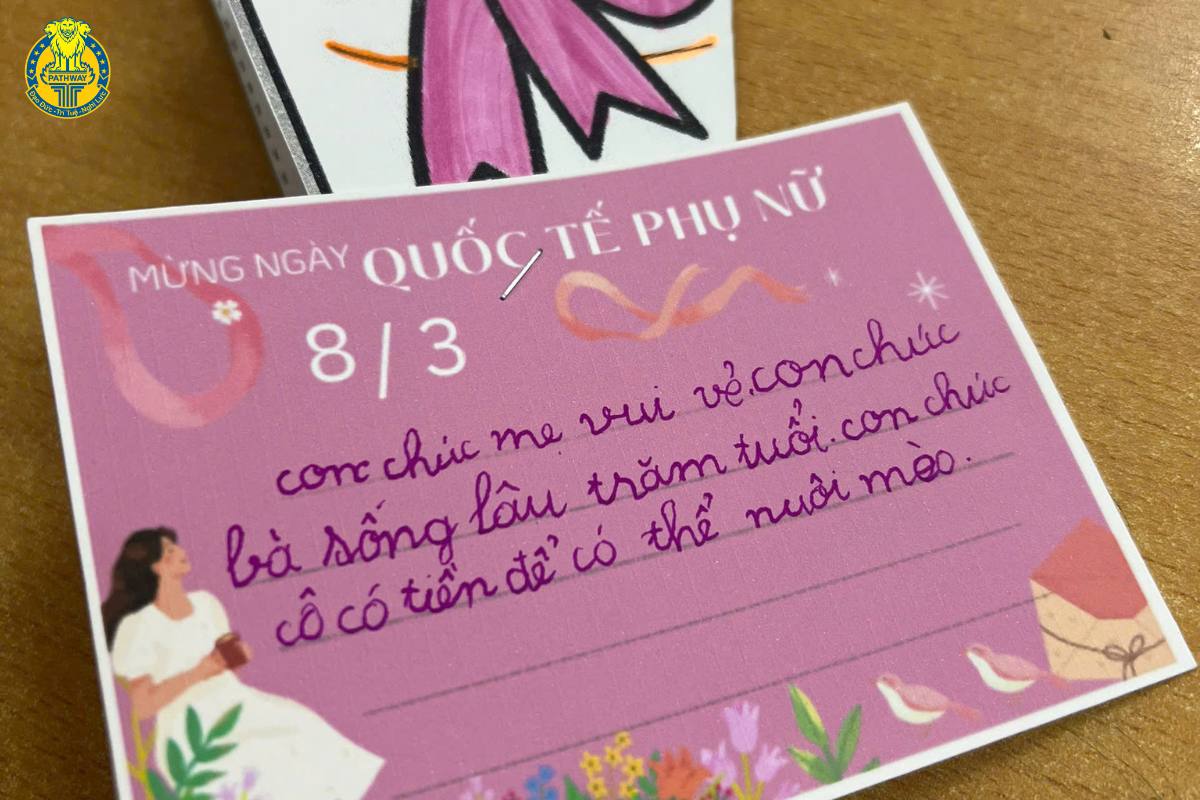 PATHWAY
Đạo Đức - Trí Tuệ - Nghị Lực
MỪNG NGÀY QUỐC TẾ PHỤ NỮ
8/3
con chúc mẹ vui vẻ. con chúc
bà sống lâu trăm tuổi. con chúc
cô có tiền để có thể nuôi mèo.